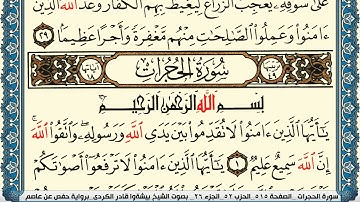 عَلَىٰ سُوقِهِۦ يُعْجِبُ ٱلزُّرَّاعَ لِيَغِيظَ بِهِمُ ٱلْكُفَّارَ وَعَدَ ٱللَّهُ ٱلَّذِينَ
ءَامَنُوا۟ وَعَمِلُوا۟ ٱلصَّٰلِحَٰتِ مِنْهُم مَّغْفِرَةً وَأَجْرًا عَظِيمًا ٢٩
سُورَةُ الحُجُرَاتِ
بِسْمِ ٱللَّهِ ٱلرَّحْمَٰنِ ٱلرَّحِيمِ
يَٰٓأَيُّهَا ٱلَّذِينَ ءَامَنُوا۟ لَا تُقَدِّمُوا۟ بَيْنَ يَدَىِ ٱللَّهِ وَرَسُولِهِۦ وَٱتَّقُوا۟ ٱللَّهَ
إِنَّ ٱللَّهَ سَمِيعٌ عَلِيمٌ ١ يَٰٓأَيُّهَا ٱلَّذِينَ ءَامَنُوا۟ لَا تَرْفَعُوٓا۟ أَصْوَٰتَكُمْ
سورة الحجرات _ الصفحة ٥١٥ _ الحزب ٥٢_ الجزء ٢٦ _ بصوت الشيخ بيشةوا قادر الكردى. برواية حفص عن عاصم